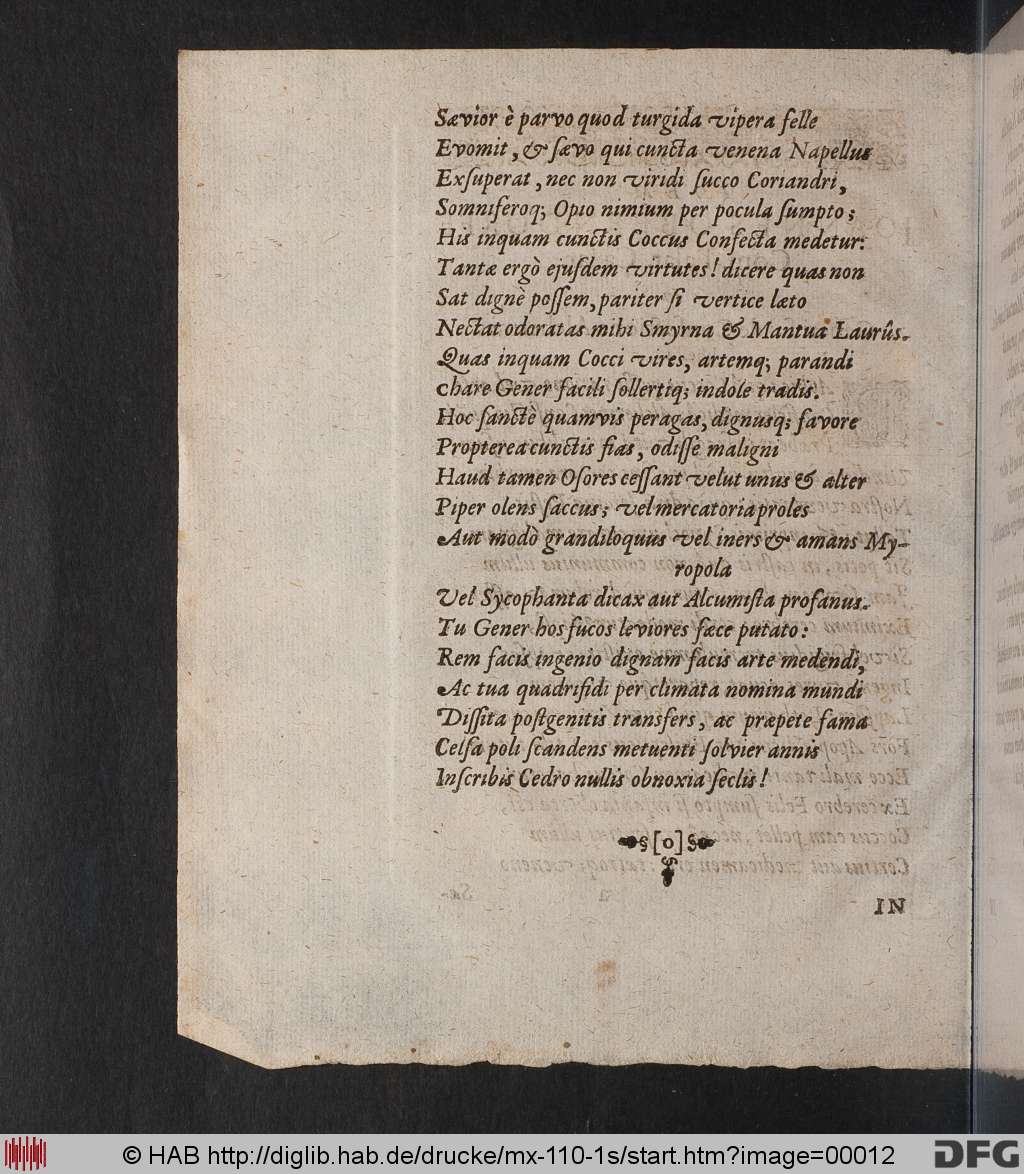 Sævior è parvo quod turgida vipera felle
Evomit, & ſævo qui cuncta venena Napellus
Exſuperat, nec non viridi ſucco Coriandri,
Somniferoq; Opio nimium per pocula ſumpto;
His inquam cunctis Coccus Confecta medetur:
Tantæ ergò ejuſdem virtutes! dicere quas non
Sat dignè poſſem, pariter ſi vertice læto
Nectat odoratas mihi Smyrna & Mantua Laurûs.
Quas inquam Cocci vires, artemq; parandi
Chare Gener facili ſollertiq; indole tradis.
Hoc ſanctè quamvis peragas, dignusq; favore
Propterea cunctis fias, odiſſe maligni
Haud tamen Oſores ceſſant velut unus & alter
Piper olens ſaccus; vel mercatoria proles
Aut modò grandiloquus vel iners & amans My-
ropola
Vel Sycophanta dicax aut Alcumiſta profanus.
Tu Gener hos fucos leviores fæce putato:
Rem facis ingenio dignam facis arte medendi,
Ac tua quadrifidi per climata nomina mundi
Diſſita poſtgenitis transfers, ac præpete fama
Celſa poli ſcandens metuenti ſolvier annis
Inſcribis Cedro nullis obnoxia ſeclis!
§[o]§
§
IN
© HAB http://diglib.hab.de/drucke/mx-110-1s/start.htm?image=00012
DFG